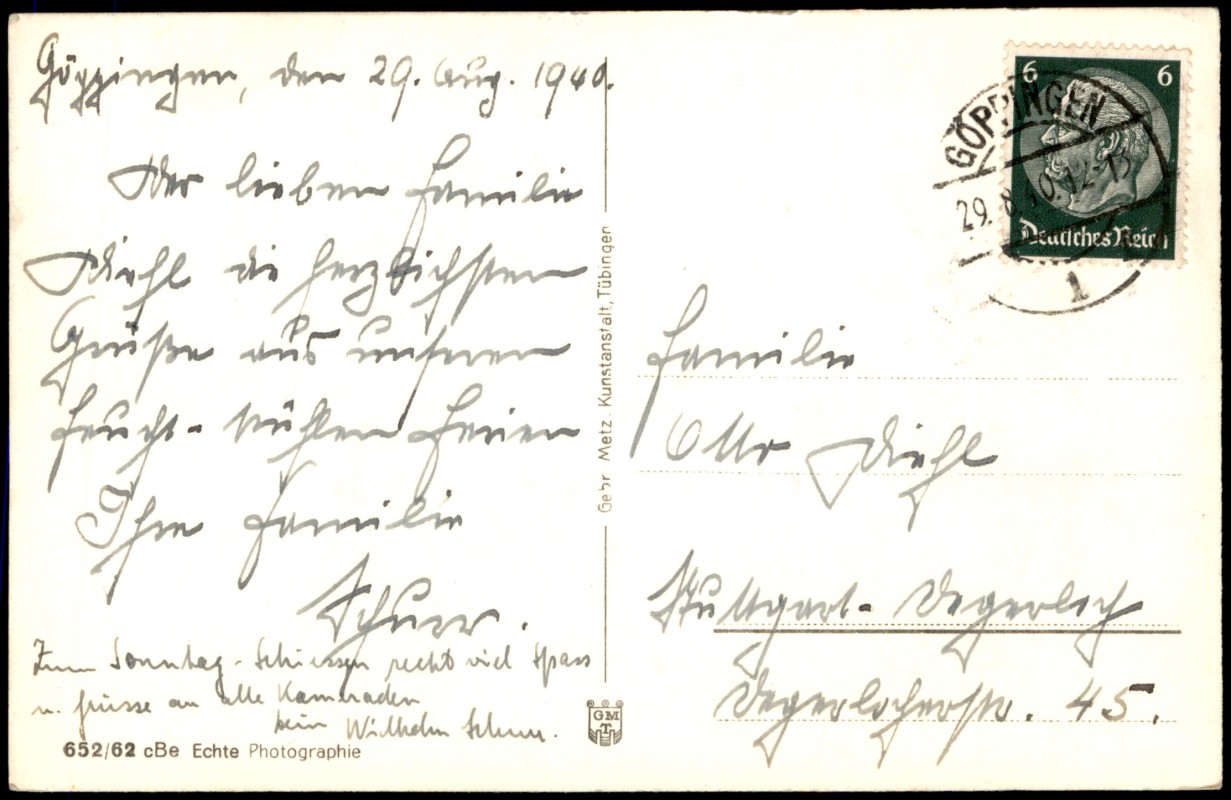 Göppingen, den 29. Aug. 1940.
Der lieben Familie
Diehl die herzlichsten
Grüße aus unseren
feucht-kühlen Ferien
Ihre Familie
Schurr.
Zum Sonntag-Schiessen recht viel Spass
u. Grüsse an alle Kameraden
Wilhelm Schurr.
652/62 cBe Echte Photographie
Gebr. Metz. Kunstanstalt, Tübingen
GMT
6 6
Deutsches Reich
GÖPPINGEN
29.8.40.12-13
1
Familie
Otto Diehl
Stuttgart-Degerloch
Degerlocherstr. 45.